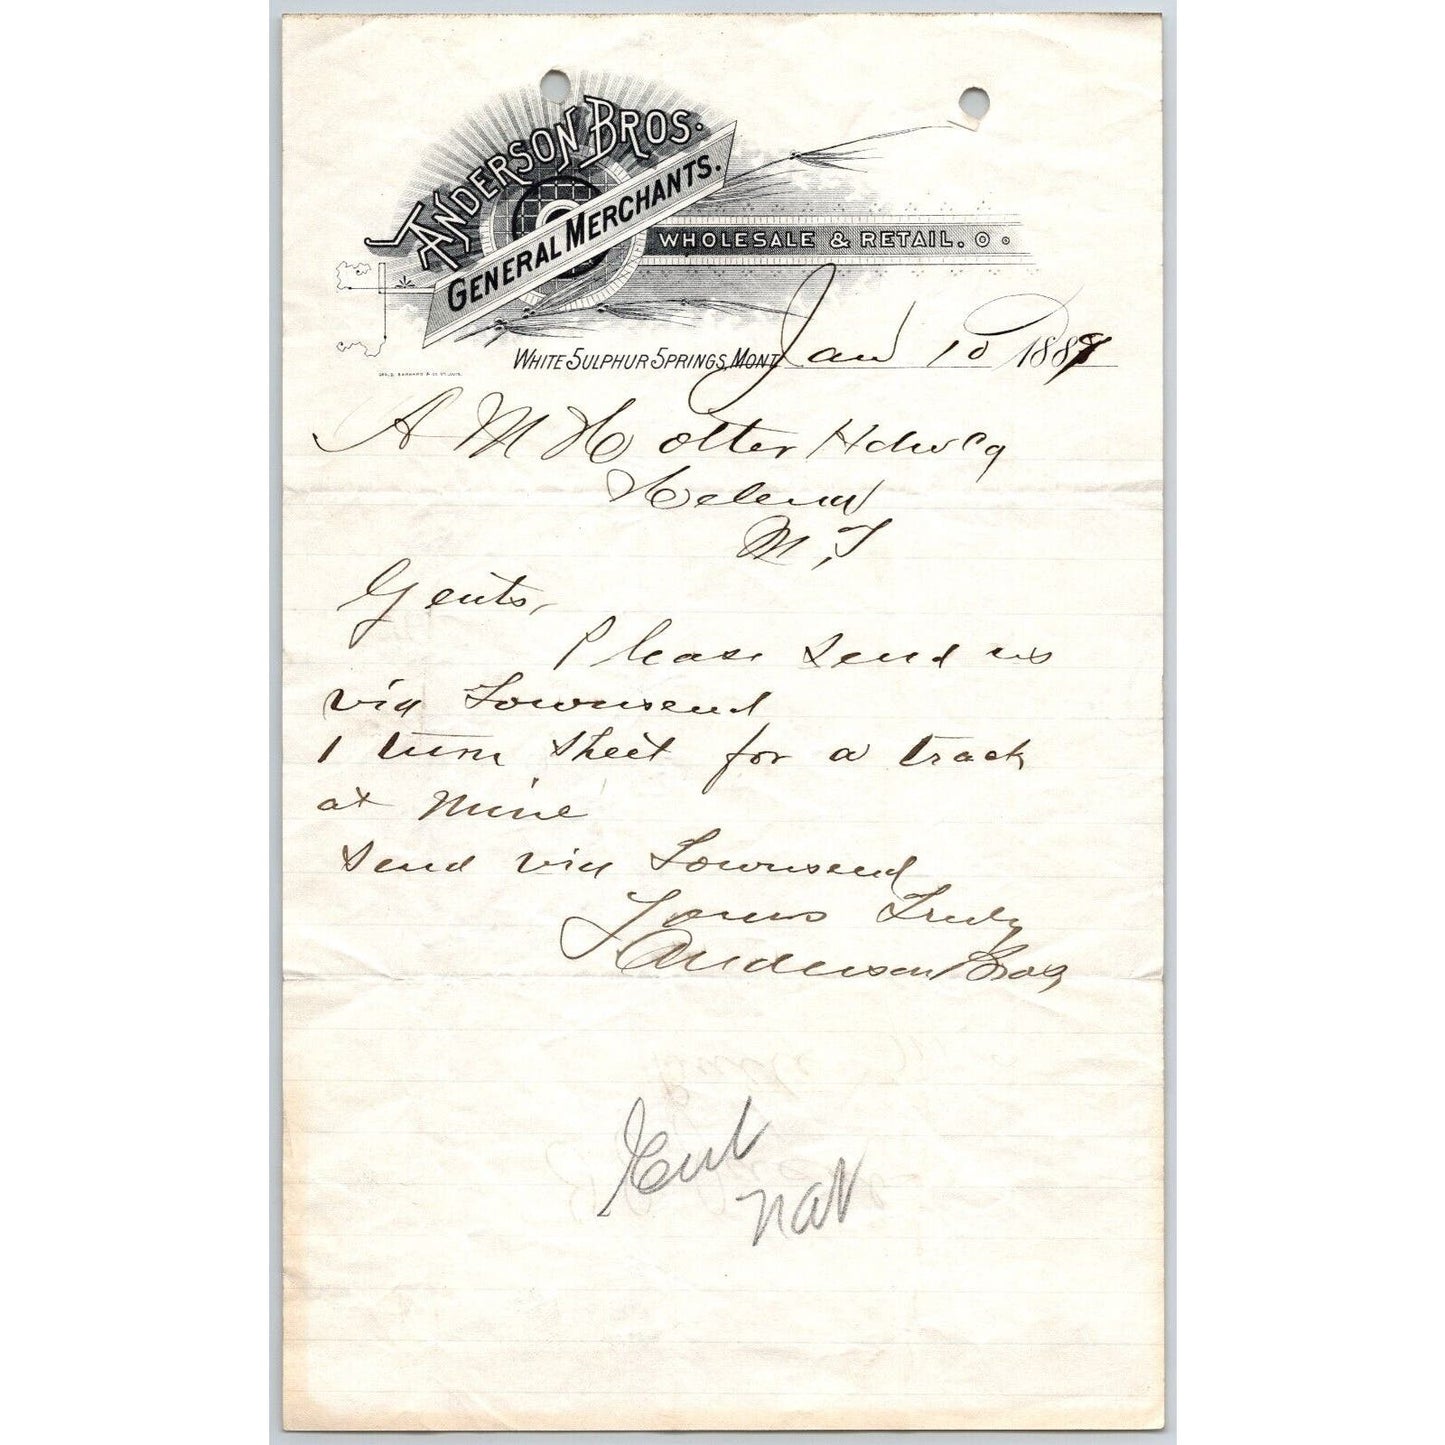 ANDERSON BROS.
GENERAL MERCHANTS.
WHOLESALE & RETAIL.
WHITE SULPHUR SPRINGS, MONT. Jan 10 1889
A M Holter Hdw Co
Helena
M.T
Gents,
Please send us
via Townsend
1 turn sheet for a track
at Mine
Send via Townsend
Yours Truly
Anderson Bros